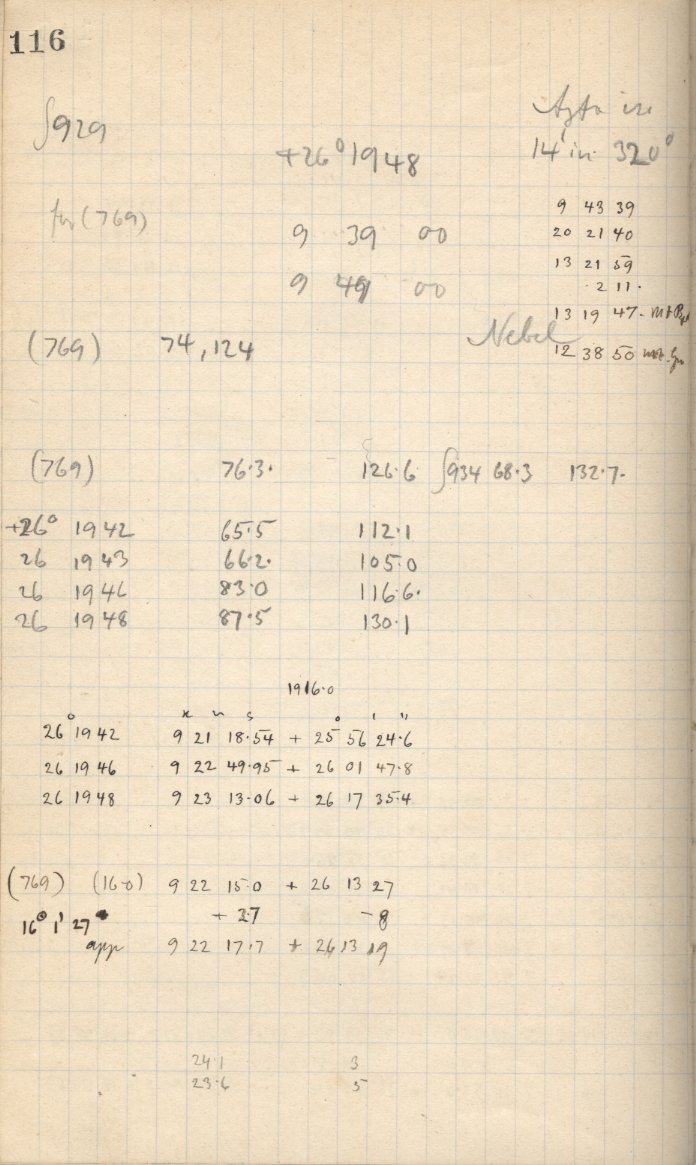 116
∫929
+26° 1948
14' in 320°
for (769)
9 39 00
9 49 00
9 43 39
20 21 40
13 21 59
2 11.
13 19 47.
Nebel
12 38 50
(769) 74,124
(769) 76.3. 126.6 ∫934 68.3 132.7.
+26° 1942 65.5 112.1
26 1943 66.2. 105.0
26 1946 83.0 116.6.
26 1948 87.5 130.1
1916.0
h m s ° ' "
26° 1942 9 21 18.54 + 25 56 24.6
26 1946 9 22 49.95 + 26 01 47.8
26 1948 9 23 13.06 + 26 17 35.4
(769) (16.0) 9 22 15.0 + 26 13 27
+ 2.7 -8
16° 1' 27"
app 9 22 17.7 + 26 13 19
24.1 3
23.6 5